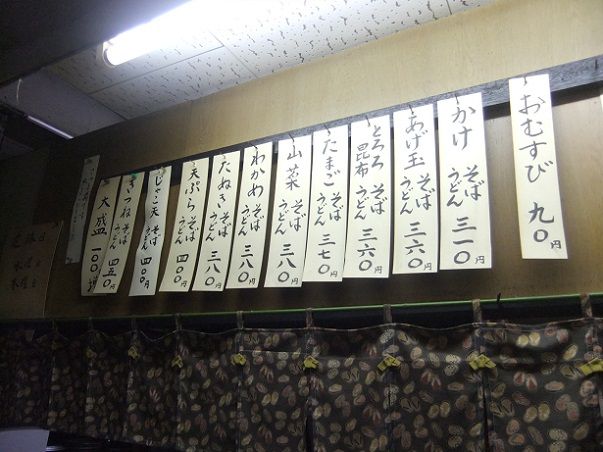 おむすび 九〇円
かけ そば うどん 三一〇円
あげ玉 そば うどん 三六〇円
とろろ昆布 そば うどん 三六〇円
たまご そば うどん 三七〇円
山菜 そば うどん 三八〇円
わかめ そば うどん 三八〇円
たぬき そば うどん 三八〇円
天ぷら そば うどん 四〇〇円
じゃこ天 そば うどん 四〇〇円
きつね そば うどん 四五〇円
大盛 一〇〇円増